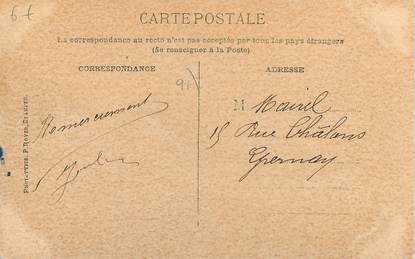 6 €
CARTE POSTALE
La correspondance au recto n'est pas acceptée par tous les pays étrangers
(Se renseigner à la Poste)
CORRESPONDANCE
ADRESSE
91
Remerciement
M Mairel
15 Rue Châlons
Epernay